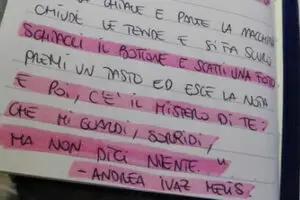 CHIAVE E PARTE LA MACCHINA
CHIUDE LE TENDE E SI FA SCURO
SCHIACCI IL BOTTONE E SCATTI UNA FOTO.
PREMI UN TASTO ED ESCE LA NOTA
E POI, C'È IL MISTERO DI TE:
CHE MI GUARDI, SORRIDI,
MA NON DICI NIENTE. "
- ANDREA IVAZ MELIS.